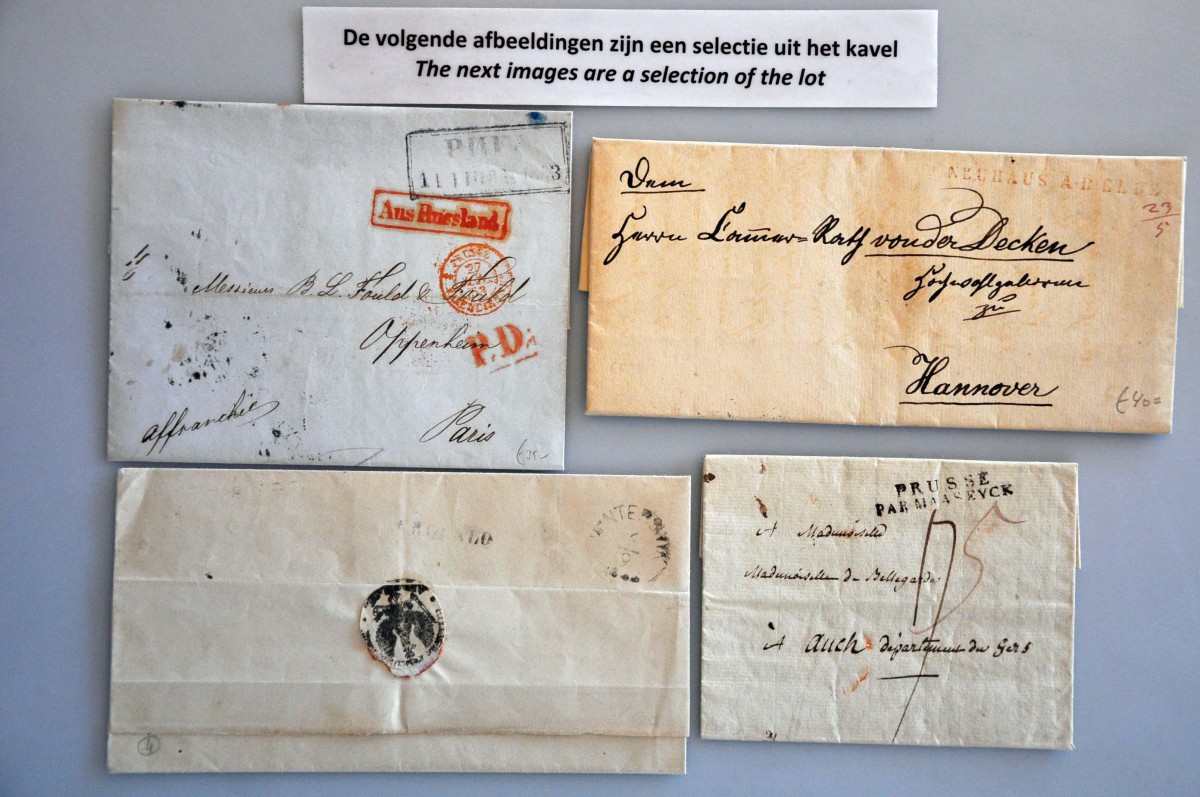 De volgende afbeeldingen zijn een selectie uit het kavel
The next images are a selection of the lot
РИГА
11
Aus Russland
PRUSSE
27
Messieurs B. L. Fould & Fould
Oppenheim
P.D.
affranchie
Paris
NEUHAUS A·D·ELBE
23
5
Dem
Herrn Cammer=Rath von der Decken
Hochwohlgeboren
zu
Hannover
€40=
4
PRUSSE
PAR MAASEYCK
A Mademoiselle
Mademoiselle de Bellegarde
à Auch département du Gers